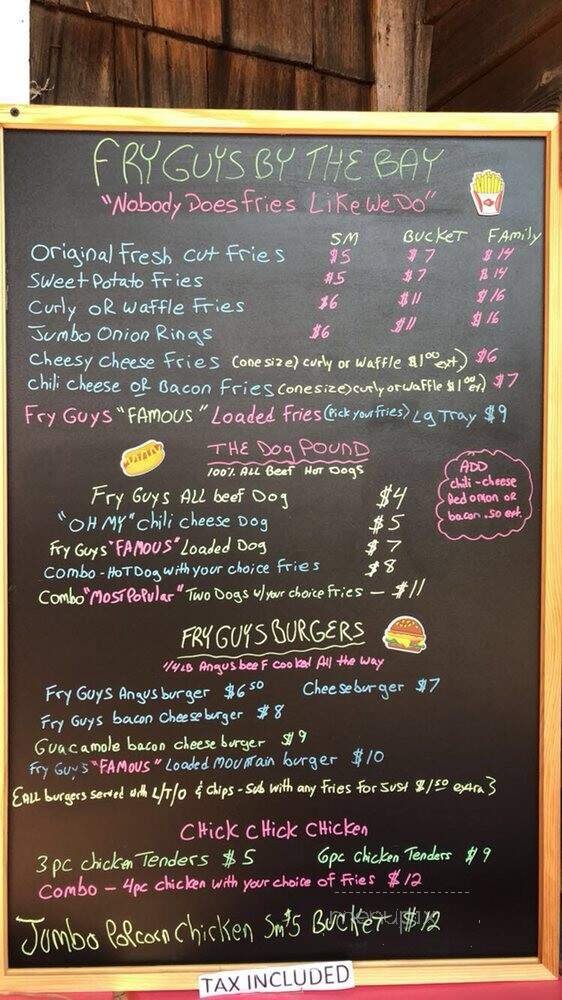 FRY GUYS BY THE BAY
"Nobody Does Fries Like We Do"
SM BUCKET FAMily
Original Fresh Cut Fries $5 $7 $14
Sweet Potato Fries $5 $7 $14
Curly OR Waffle Fries $6 $11 $16
Jumbo Onion Rings $6 $11 $16
Cheesy Cheese Fries (one size) curly or Waffle $1.00 ext) $6
Chili Cheese OR Bacon Fries (one size) curly or waffle $1.00 ef) $7
Fry Guys "FAMOUS" Loaded Fries (Pick your Fries) Lg Tray $9
THE Dog POUND
100% ALL Beef Hot Dogs
ADD
chili-cheese
Red onion OR
bacon .50 ext.
Fry Guys ALL beef Dog $4
"OH MY" chili cheese Dog $5
Fry Guys "FAMOUS" Loaded Dog $7
Combo - HOT Dog with your choice Fries $8
Combo "MOST POPULAR" Two Dogs w/your choice Fries - $11
FRY GUYS BURGERS
1/4 LB Angus beef cooked All the way
Fry Guys Angus burger $6.50 Cheeseburger $7
Fry Guys bacon cheeseburger $8
Guacamole bacon cheese burger $9
Fry Guy's "FAMOUS" Loaded MOUNTAIN burger $10
{ALL burgers served with L/T/O & chips - Sub with any Fries For JUST $1.50 extra}
CHICK CHICK CHICKEN
3pc chicken Tenders $5 6pc chicken Tenders $9
Combo - 4pc chicken with your choice of Fries $12
Jumbo Popcorn Chicken Sm $5 BUCKET $12
menupix
TAX INCLUDED